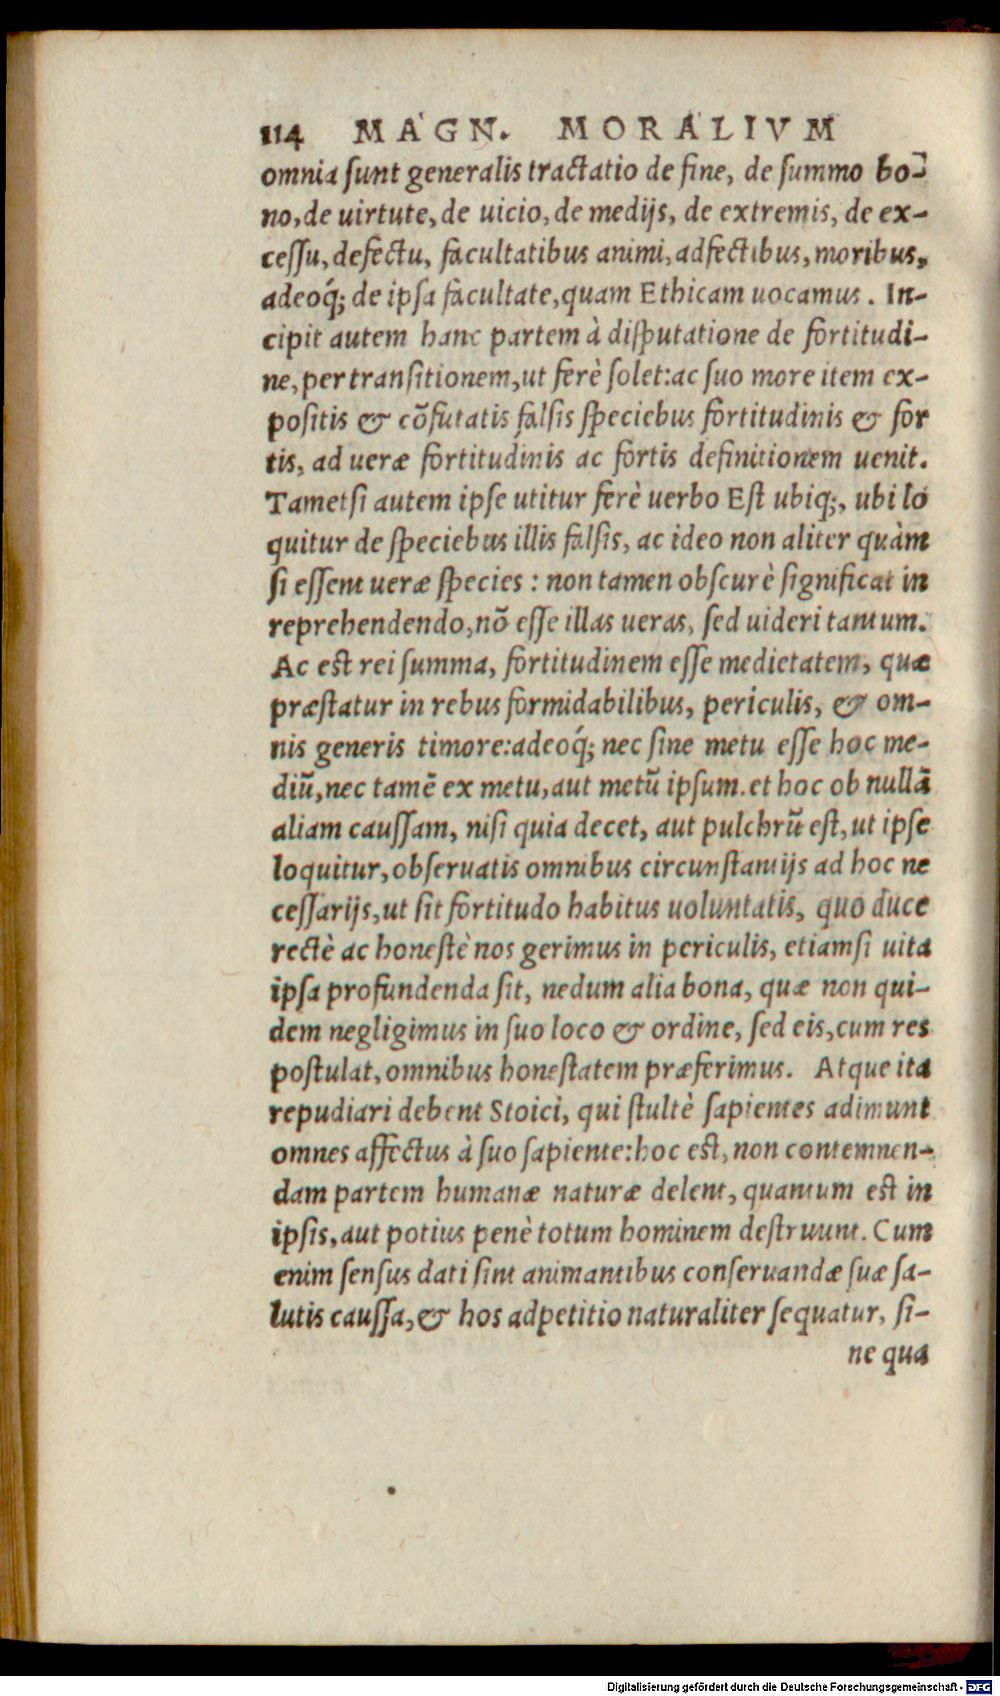 114 MAGN. MORALIVM
omnia ſunt generalis tractatio de fine, de ſummo bo-
no, de uirtute, de uicio, de medijs, de extremis, de ex-
ceſſu, defectu, facultatibus animi, adfectibus, moribus,
adeoq́; de ipſa facultate, quam Ethicam uocamus. In-
cipit autem hanc partem à diſputatione de fortitudi-
ne, per tranſitionem, ut ferè ſolet: ac ſuo more item ex-
poſitis & cõfutatis falſis ſpeciebus fortitudinis & for
tis, ad ueræ fortitudinis ac fortis definitionem uenit.
Tametſi autem ipſe utitur ferè uerbo Eſt ubiq;, ubi lo
quitur de ſpeciebus illis falſis, ac ideo non aliter quàm
ſi eſſent ueræ ſpecies: non tamen obſcurè ſignificat in
reprehendendo, nõ eſſe illas ueras, ſed uideri tantum.
Ac eſt rei ſumma, fortitudinem eſſe medietatem, quæ
præſtatur in rebus formidabilibus, periculis, & om-
nis generis timore: adeoq́; nec ſine metu eſſe hoc me-
diũ, nec tamẽ ex metu, aut metũ ipſum. et hoc ob nullã
aliam cauſſam, niſi quia decet, aut pulchrũ eſt, ut ipſe
loquitur, obſeruatis omnibus circunſtantijs ad hoc ne
ceſſarijs, ut ſit fortitudo habitus uoluntatis, quo duce
rectè ac honeſtè nos gerimus in periculis, etiamſi uita
ipſa profundenda ſit, nedum alia bona, quæ non qui-
dem negligimus in ſuo loco & ordine, ſed eis, cum res
poſtulat, omnibus honeſtatem præferimus. Atque ita
repudiari debent Stoici, qui ſtultè ſapientes adimunt
omnes affectus à ſuo ſapiente: hoc eſt, non contemnen-
dam partem humanæ naturæ delent, quantum eſt in
ipſis, aut potius penè totum hominem deſtruunt. Cum
enim ſenſus dati ſint animantibus conſeruandæ ſuæ ſa-
lutis cauſſa, & hos adpetitio naturaliter ſequatur, ſi-
ne qua
Digitalisierung gefördert durch die Deutsche Forschungsgemeinschaft - DFG